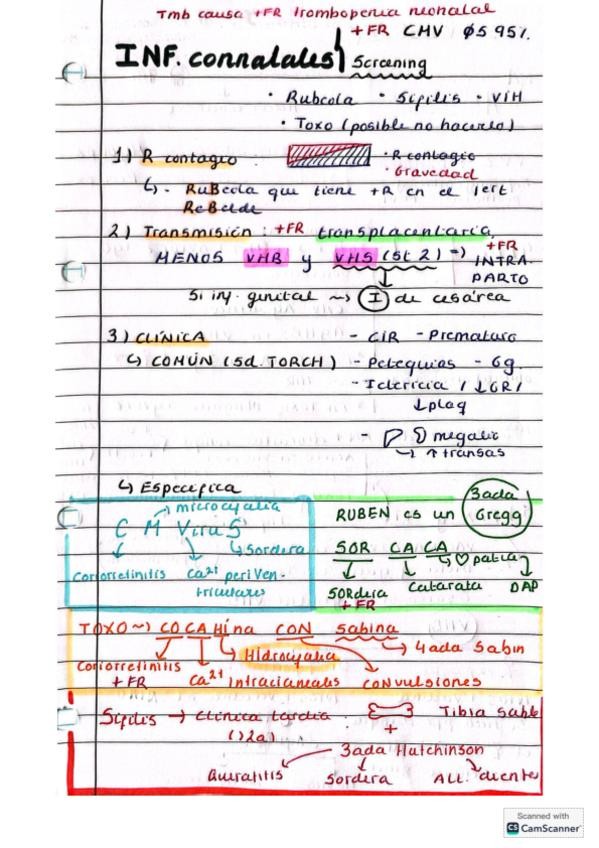 Tmb causa +FR trombopenia neonatal
+FR CMV ØS 95%
INF. connatales
Screening
· Rubeola · Sífilis · VIH
· Toxo (posible no hacerlo)
1) R contagio :
· R contagio
· Gravedad
↳ - RuBeola que tiene +R en el 1ert
ReBelde
2) Transmisión : +FR transplacentaria,
MENOS VHB y VHS (st 2) => +FR INTRA-
PARTO
Si inf. genital ~> (I) de cesárea
3) CLÍNICA
- CIR - Prematuro
↳ COMÚN (Sd. TORCH)
- Petequias - Gg.
- Ictericia / ↓GR/
↓plaq
- megalia
↳ ↑ transas
↳ Específica
microcefalia
C M VíruS
↳ Sordera
Coriorretinitis
Ca2+ periven-
triculares
3ada
RUBEN es un Gregg
SOR CA CA
↳ ♡ patía
SORdera
+ FR
Catarata
DAP
TOXO ~> COCAHína CON Sabina
↳ 4ada Sabin
Hidrocefalia
Coriorretinitis
+ FR
Ca2+ intracraneales
CONvulsiones
Sífilis → Clínica tardía :
Tibia Sable
(>2a)
+
3ada Hutchinson
Queratitis
Sordera
All. diente
Scanned with
CS CamScanner